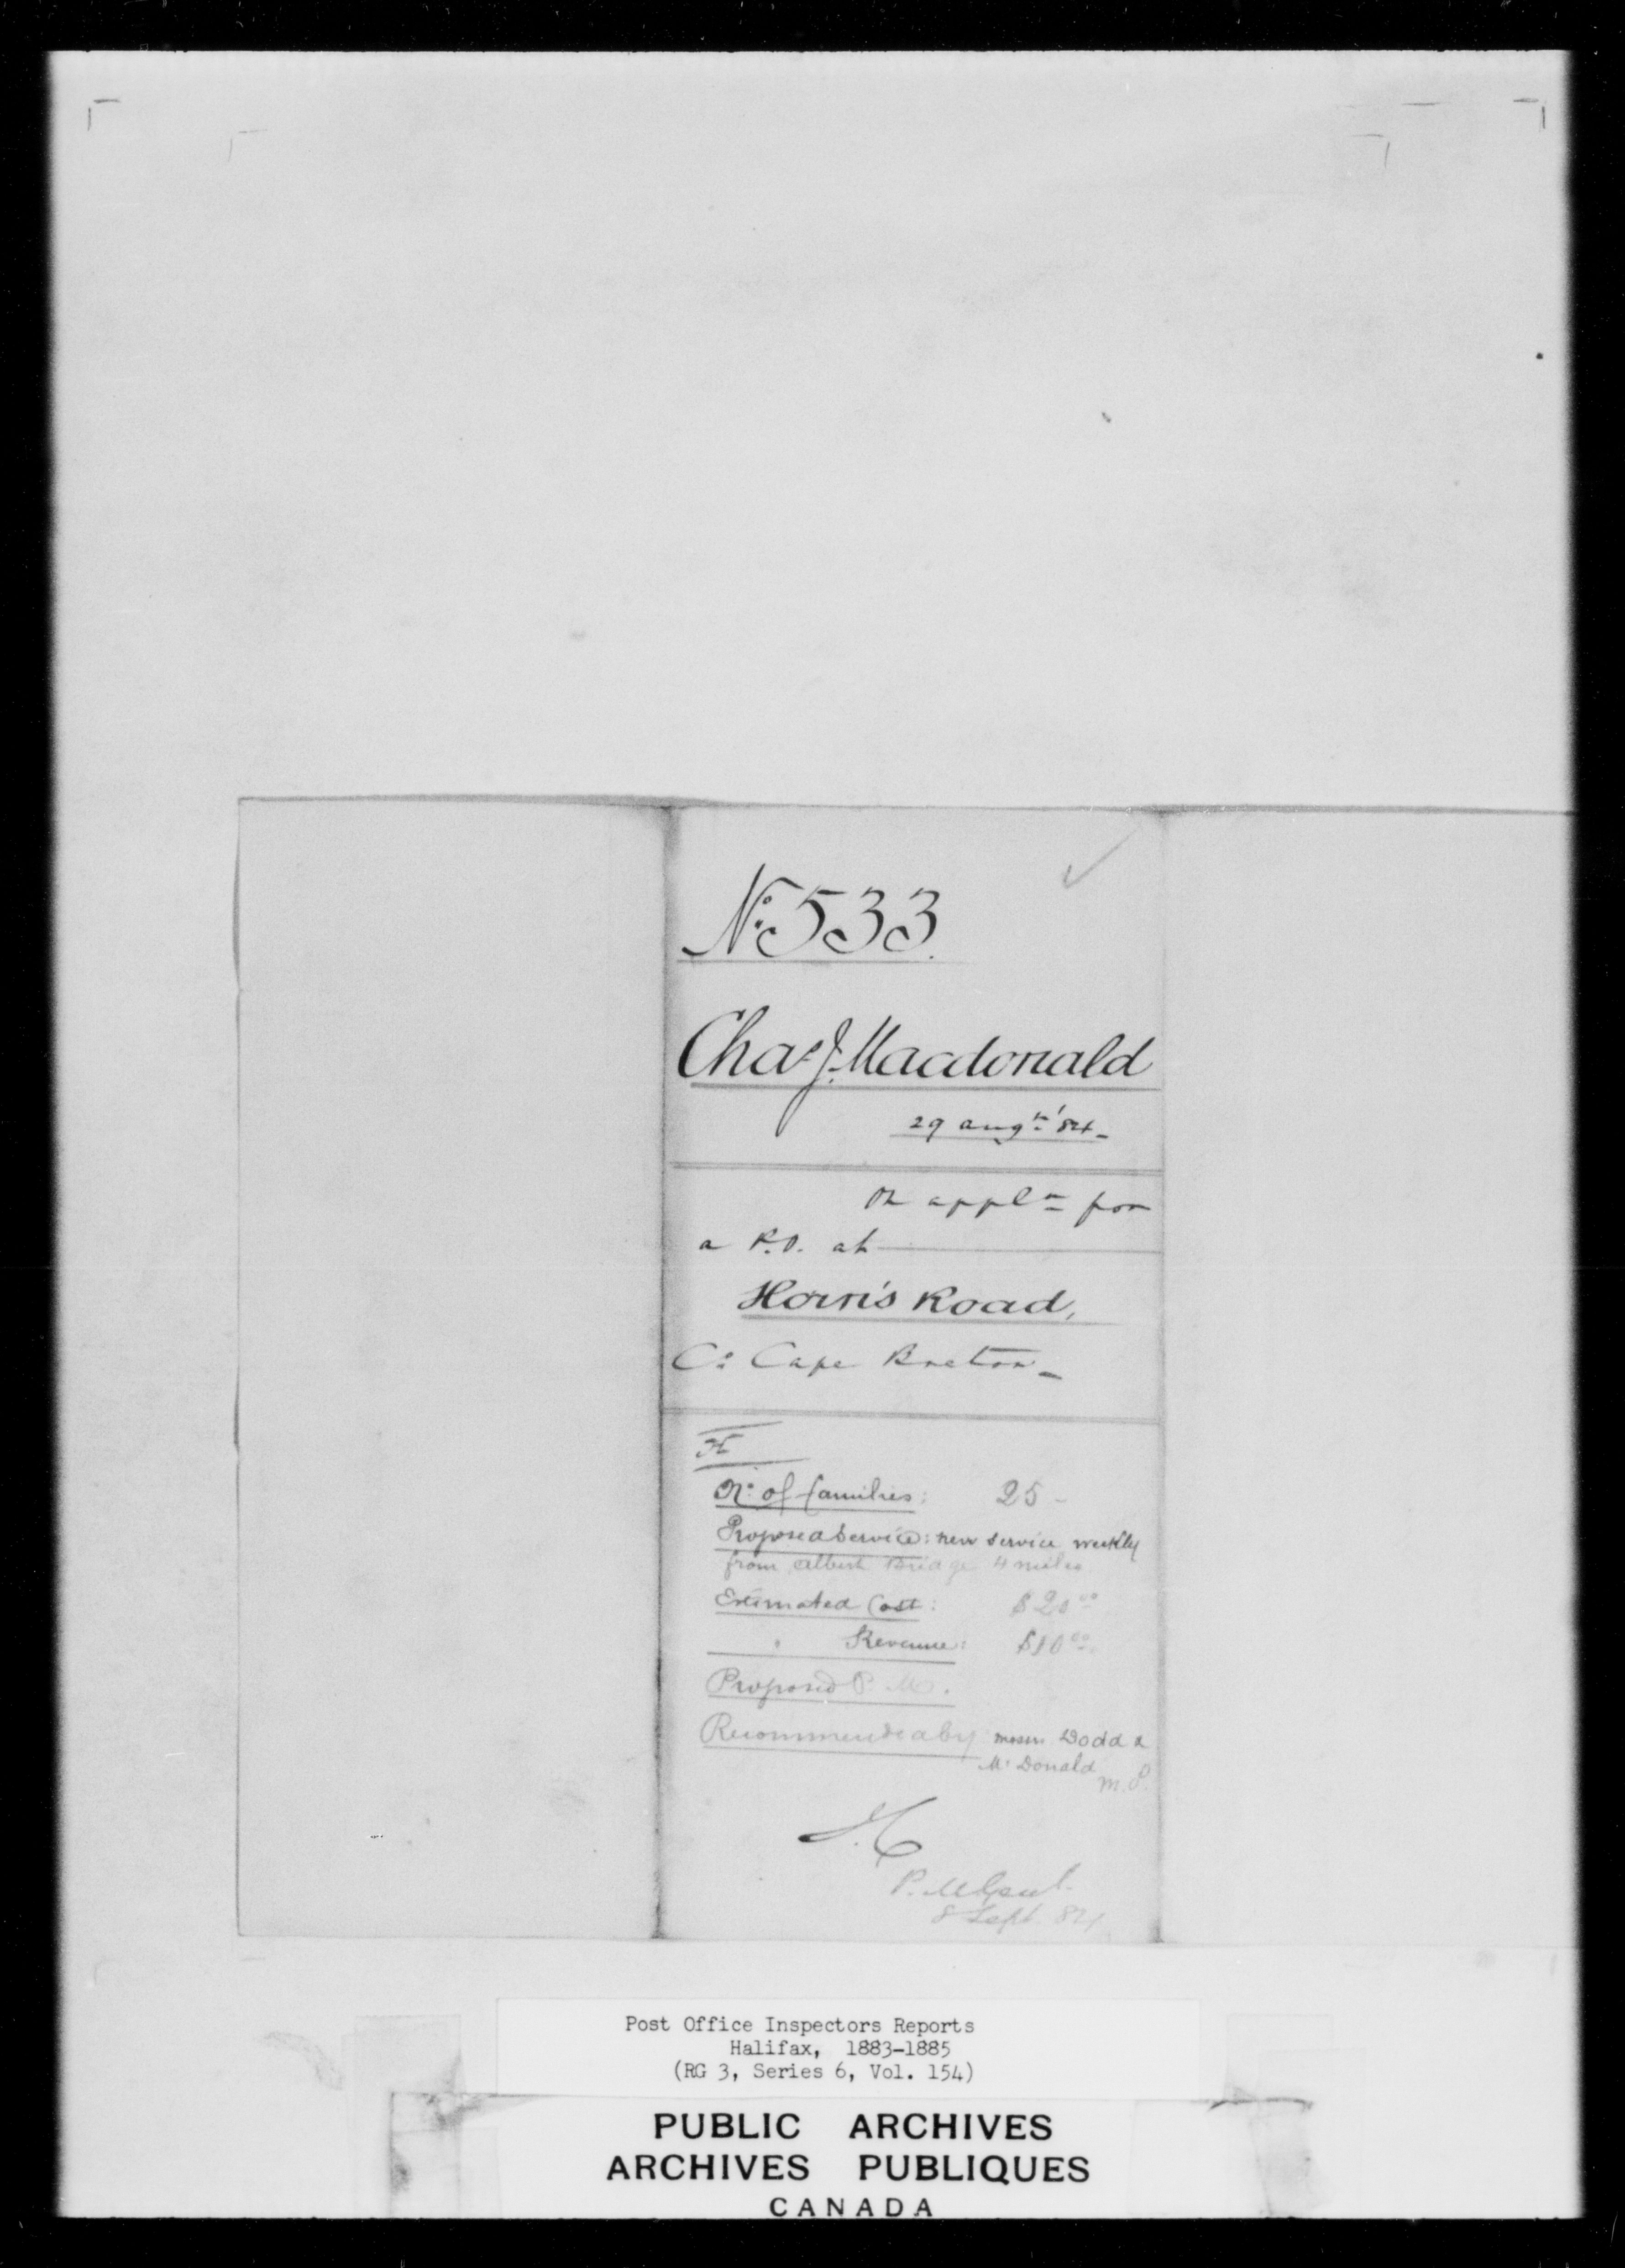 No. 533.
Chas. J. Macdonald
29 augt. '84 -
On appln for
a P.O. at
Horris Road,
Co. Cape Breton -
No. of families: 25 -
Proposed Service: new service weekly
from Albert Bridge 4 miles
Estimated Cost: $20.00
" Revenue: $10.00
Proposed P. M.
Recommended by Messrs Dodd &
McDonald
M.P.
P.M. Genl.
8 Sept. 84
Post Office Inspectors Reports
Halifax, 1883-1885
(RG 3, Series 6, Vol. 154)
PUBLIC ARCHIVES
ARCHIVES PUBLIQUES
CANADA